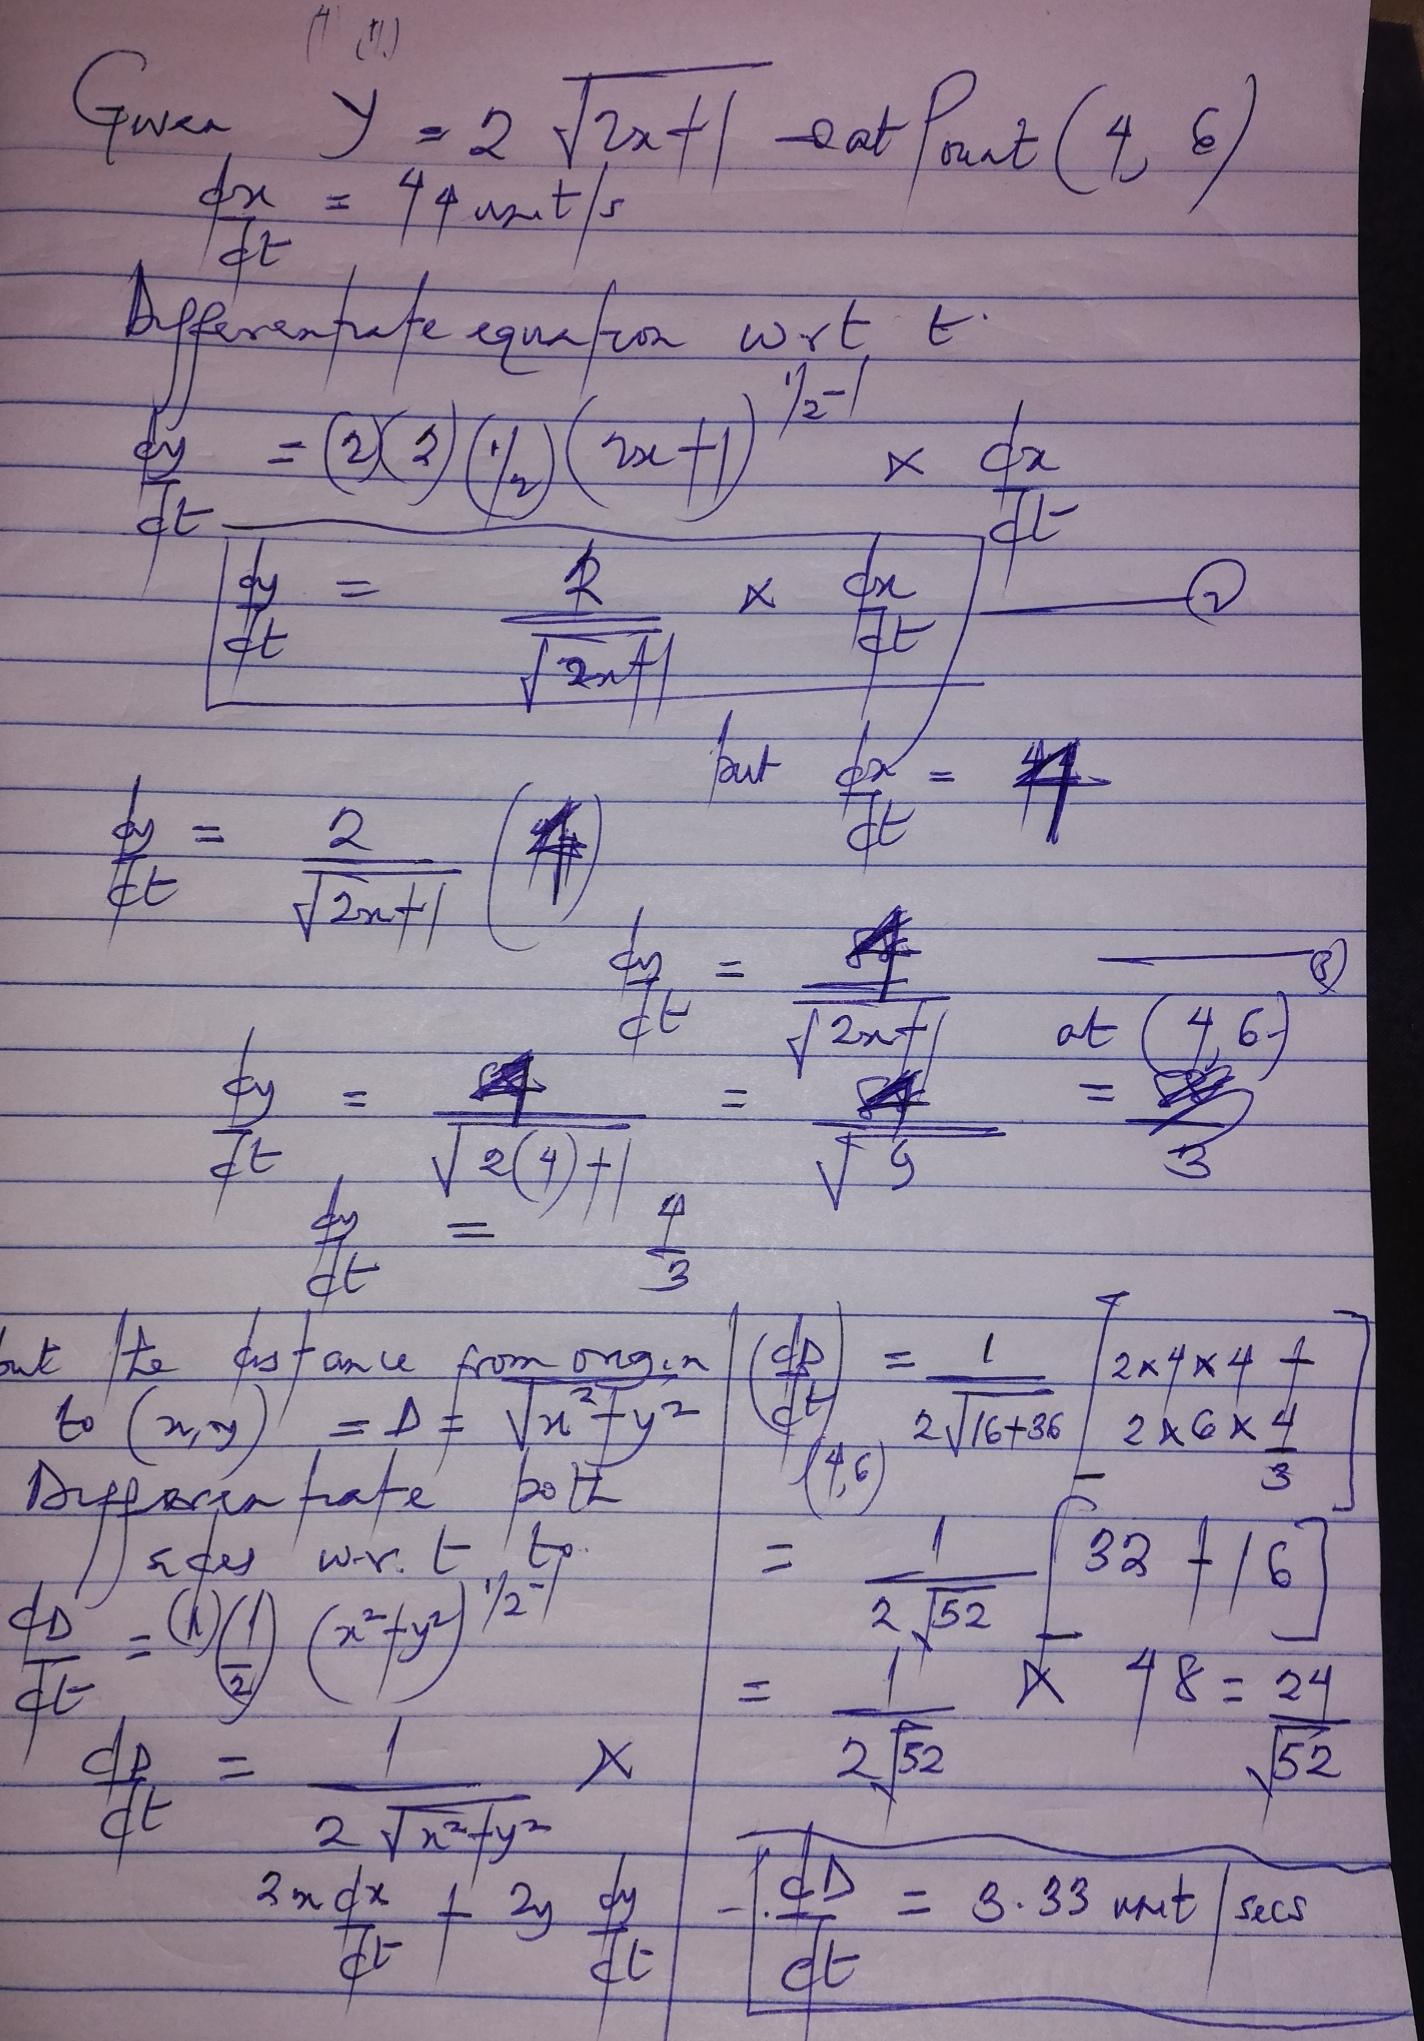 Given y = 2 √2x+1 → at Point (4, 6)
dx/dt = 44 unit/s
Differentiate equation w r t t.
dy/dt = (2)(2)(1/2)(2x+1)^1/2-1 × dx/dt
dy/dt = 2/√2x+1 × dx/dt ——— (2)
but dx/dt = 4
dy/dt = 2/√2x+1 (4)
dy/dt = 4/√2x+1 ——— (3)
at (4,6)
dy/dt = 4/√2(4)+1 = 4/√9 = /3
dy/dt = 4/3
but the distance from origin
to (x,y) = D = √x²+y²
Differentiate both
sides w.r.t to.
dD/dt = (1)(1/2)(x²+y²)^1/2-1
dD/dt = 1/2√x²+y² ×
2x dx/dt + 2y dy/dt
(dD/dt)(4,6) = 1/2√16+36 [2×4×4 + 2×6×4/3]
= 1/2√52 [32 + 16]
= 1/2√52 × 48 = 24/√52
∴ dD/dt = 3.33 unit/secs